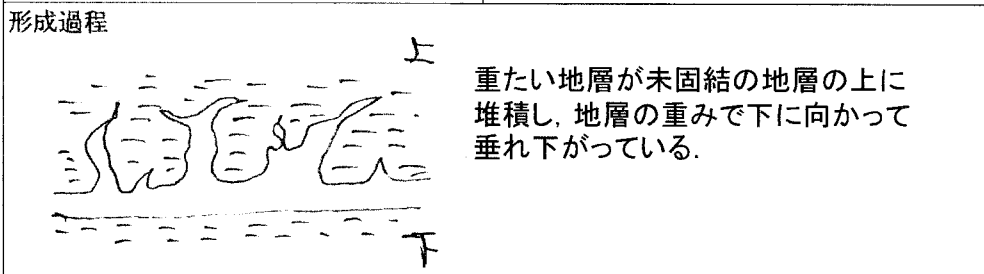 形成過程
上
重たい地層が未固結の地層の上に
堆積し，地層の重みで下に向かって
垂れ下がっている．
下